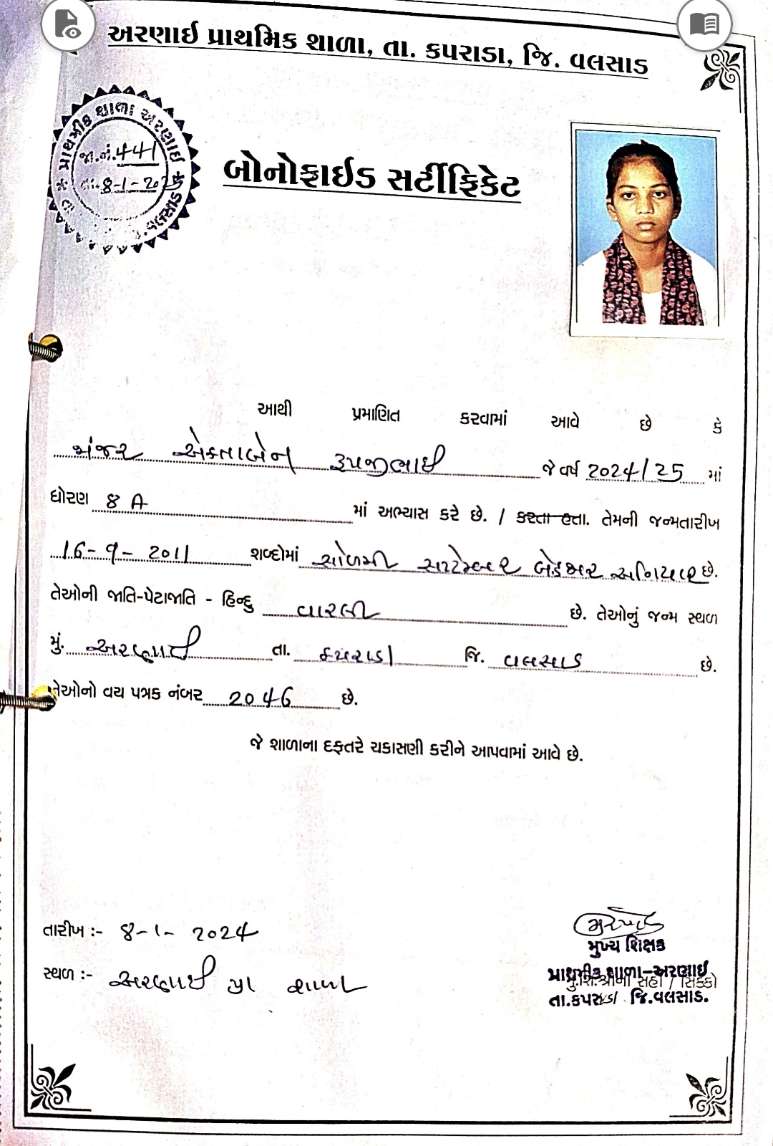 અરણાઈ પ્રાથમિક શાળા, તા. કપરાડા, જિ. વલસાડ
પ્રાથમીક શાળા અરણાઈ
જા.નં. 441
તા. 8-1-2025
જિ. વલસાડ
બોનોફાઈડ સર્ટીફિકેટ
આથી પ્રમાણિત કરવામાં આવે છે કે
એકતાબેન રૂપજીભાઈ જે વર્ષ 2024/25 માં
ધોરણ 8 A માં અભ્યાસ કરે છે. / કરતા હતા. તેમની જન્મતારીખ
16-9-2011 શબ્દોમાં સોળમી સપ્ટેમ્બર બેહજાર અગિયાર છે.
તેઓની જાતિ-પેટાજાતિ - હિન્દુ વારલી છે. તેઓનું જન્મ સ્થળ
મું. અરણાઈ તા. કપરાડા જિ. વલસાડ છે.
તેઓનો વય પત્રક નંબર 2046 છે.
જે શાળાના દફતરે ચકાસણી કરીને આપવામાં આવે છે.
તારીખ :- 8-1-2024
સ્થળ :- અરણાઈ પ્રા શાળા
મુખ્ય શિક્ષક
પ્રાથમીક શાળા-અરણાઈ
મુ.શિ.શ્રીની સહી / સિક્કો
તા.કપરાડા જિ.વલસાડ.